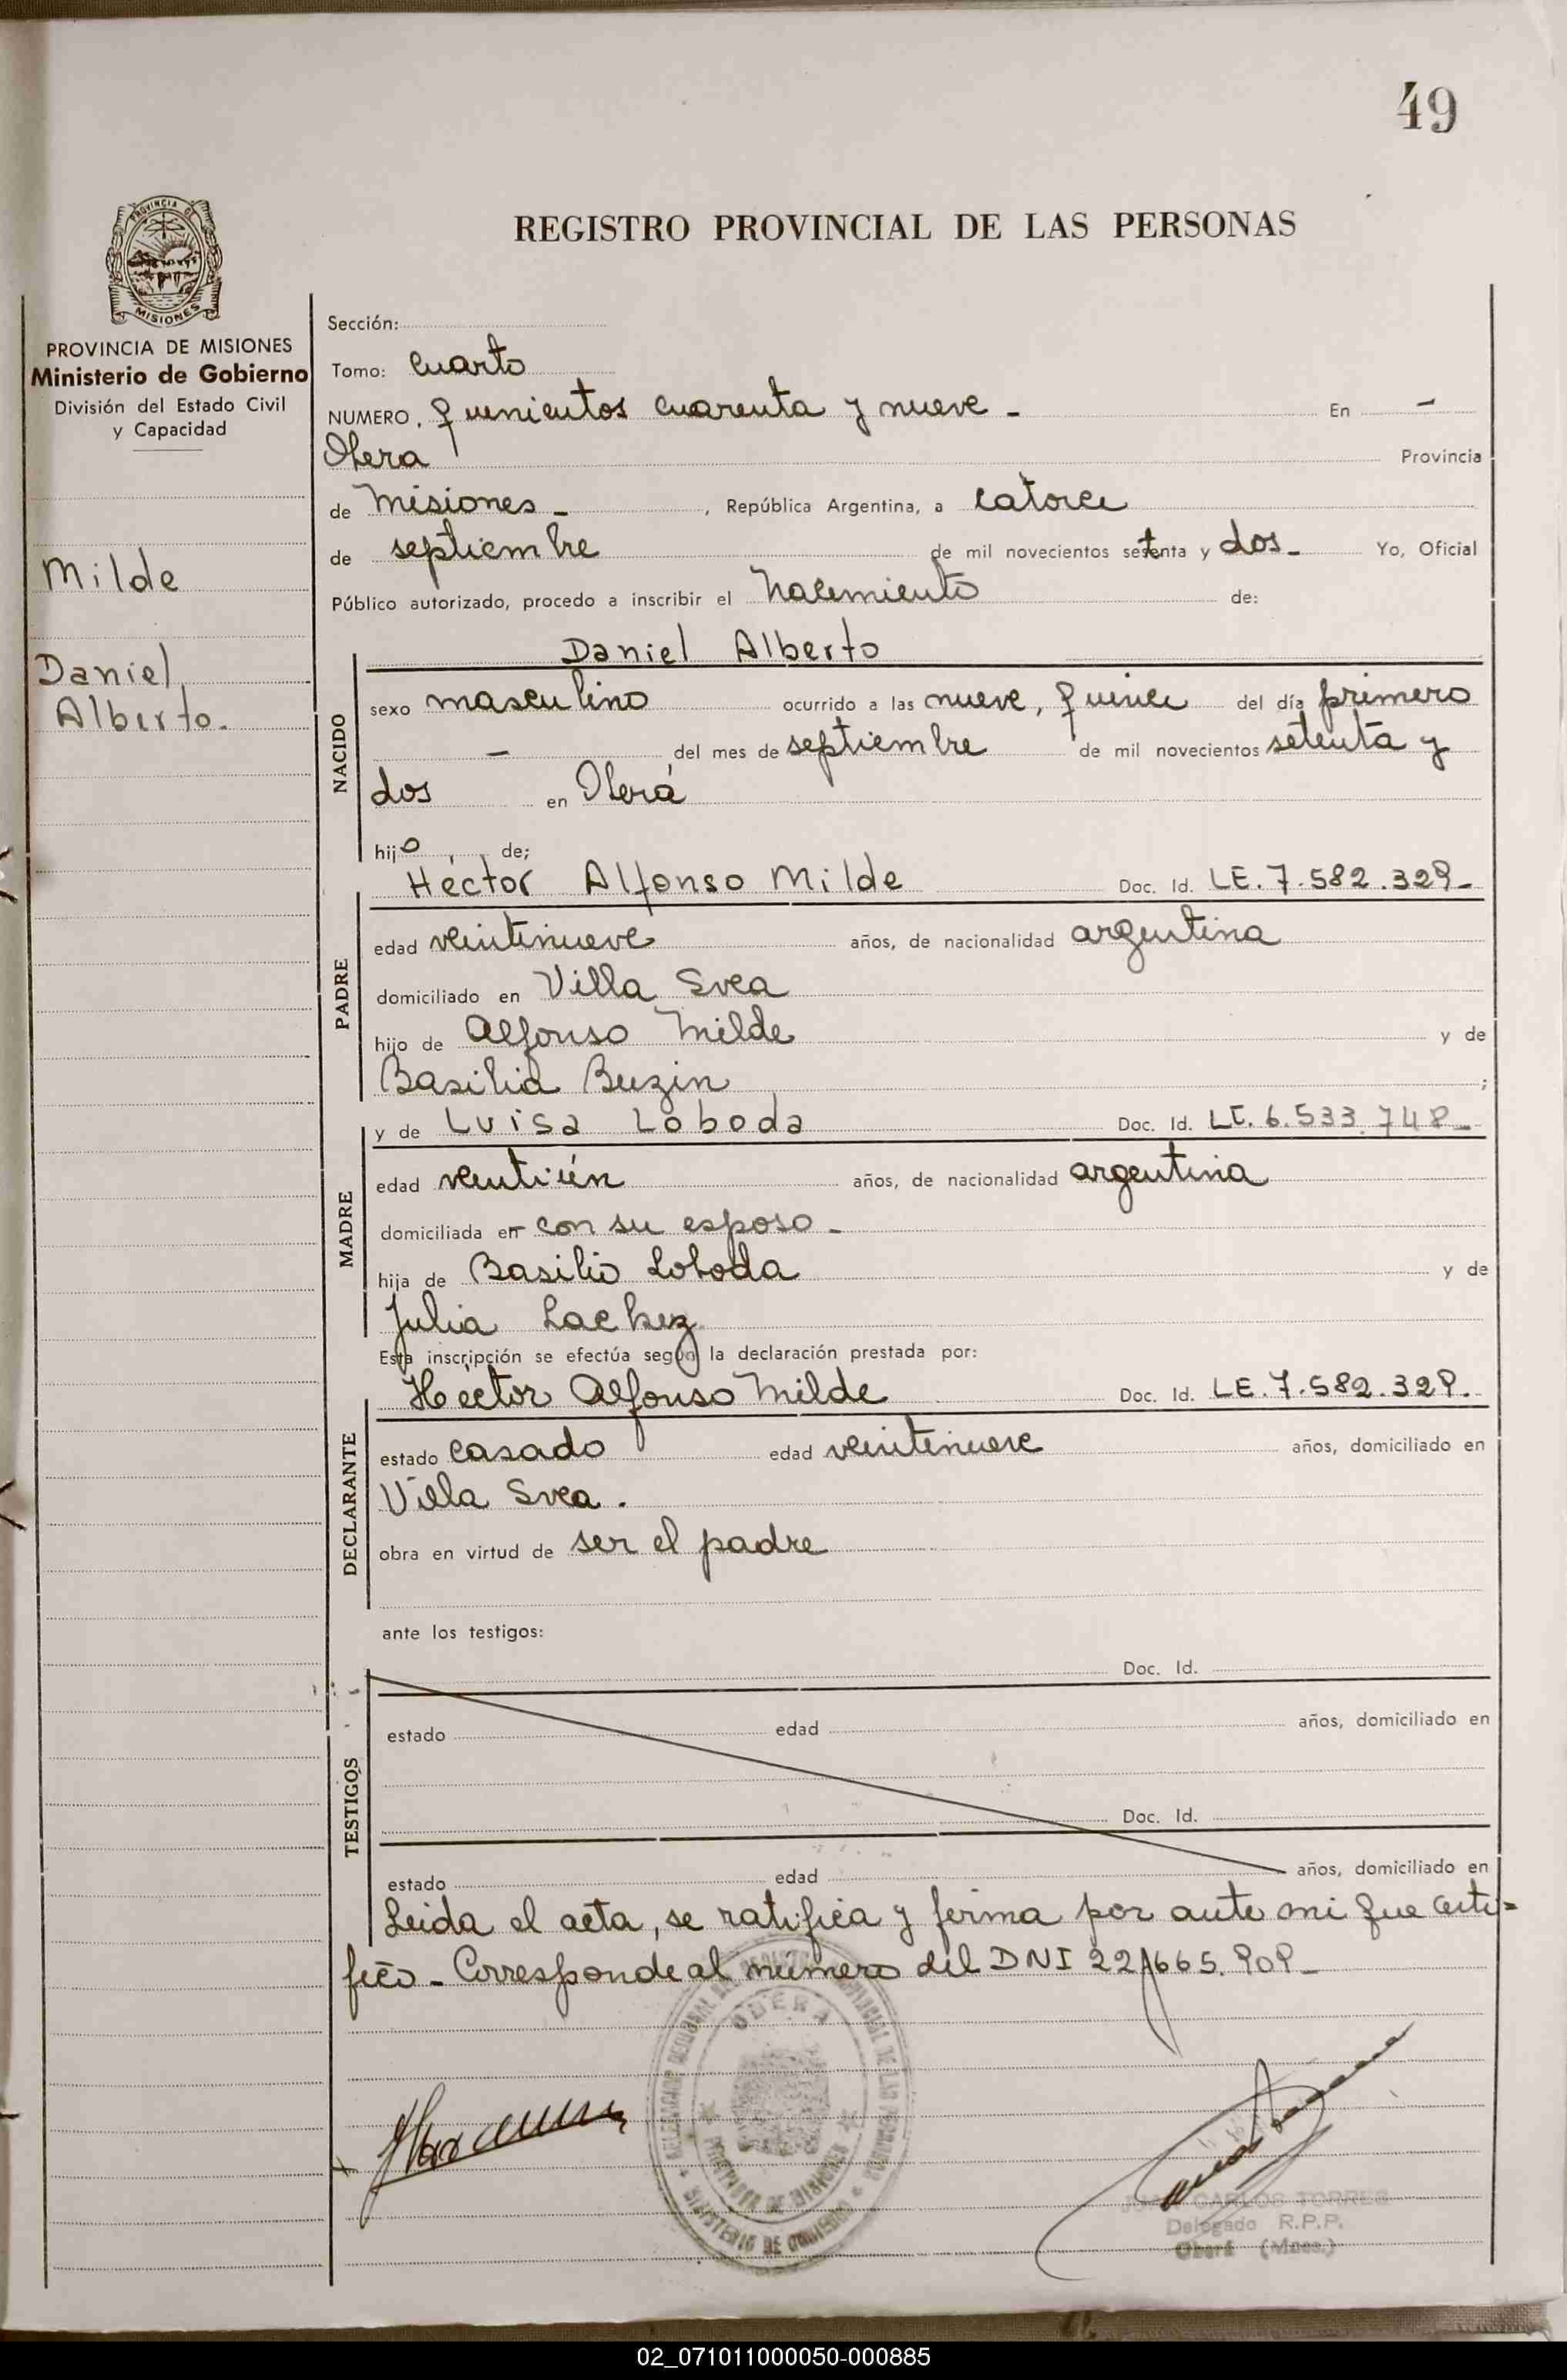 49
REGISTRO PROVINCIAL DE LAS PERSONAS
PROVINCIA DE
MISIONES
PROVINCIA DE MISIONES
Ministerio de Gobierno
División del Estado Civil
y Capacidad
Milde
Daniel
Alberto.
Sección:
Tomo: Cuarto
NUMERO, quinientos cuarenta y nueve - En -
Oberá Provincia
de Misiones - , República Argentina, a catorce
de septiembre de mil novecientos setenta y dos - Yo, Oficial
Público autorizado, procedo a inscribir el Nacimiento de:
Daniel Alberto
NACIDO
sexo masculino ocurrido a las nueve, quince del día primero
- del mes de septiembre de mil novecientos setenta y
dos en Oberá
hijo de;
Héctor Alfonso Milde Doc. Id. LE. 7.582.329-
PADRE
edad veintinueve años, de nacionalidad argentina
domiciliado en Villa Svea
hijo de Alfonso Milde y de
Basilia Buzin ;
y de Luisa Loboda Doc. Id. LC. 6.533.748-
MADRE
edad veintiún años, de nacionalidad argentina
domiciliada en con su esposo -
hija de Basilio Loboda y de
Julia
Esta inscripción se efectúa según la declaración prestada por:
Héctor Alfonso Milde Doc. Id. LE. 7.582.329.
DECLARANTE
estado casado edad veintinueve años, domiciliado en
Villa Svea.
obra en virtud de ser el padre
ante los testigos:
Doc. Id.
TESTIGOS
estado edad años, domiciliado en
Doc. Id.
estado edad años, domiciliado en
Leida el acta, se ratifica y firma por ante mi que certi=
fico - Corresponde al número del DNI 22.665.909-
OBERA
PROVINCIA DE MISIONES
MINISTERIO DE GOBIERNO
JUAN CARLOS TORRES
Delegado R.P.P.
Oberá (Mnes.)
02_071011000050-000885